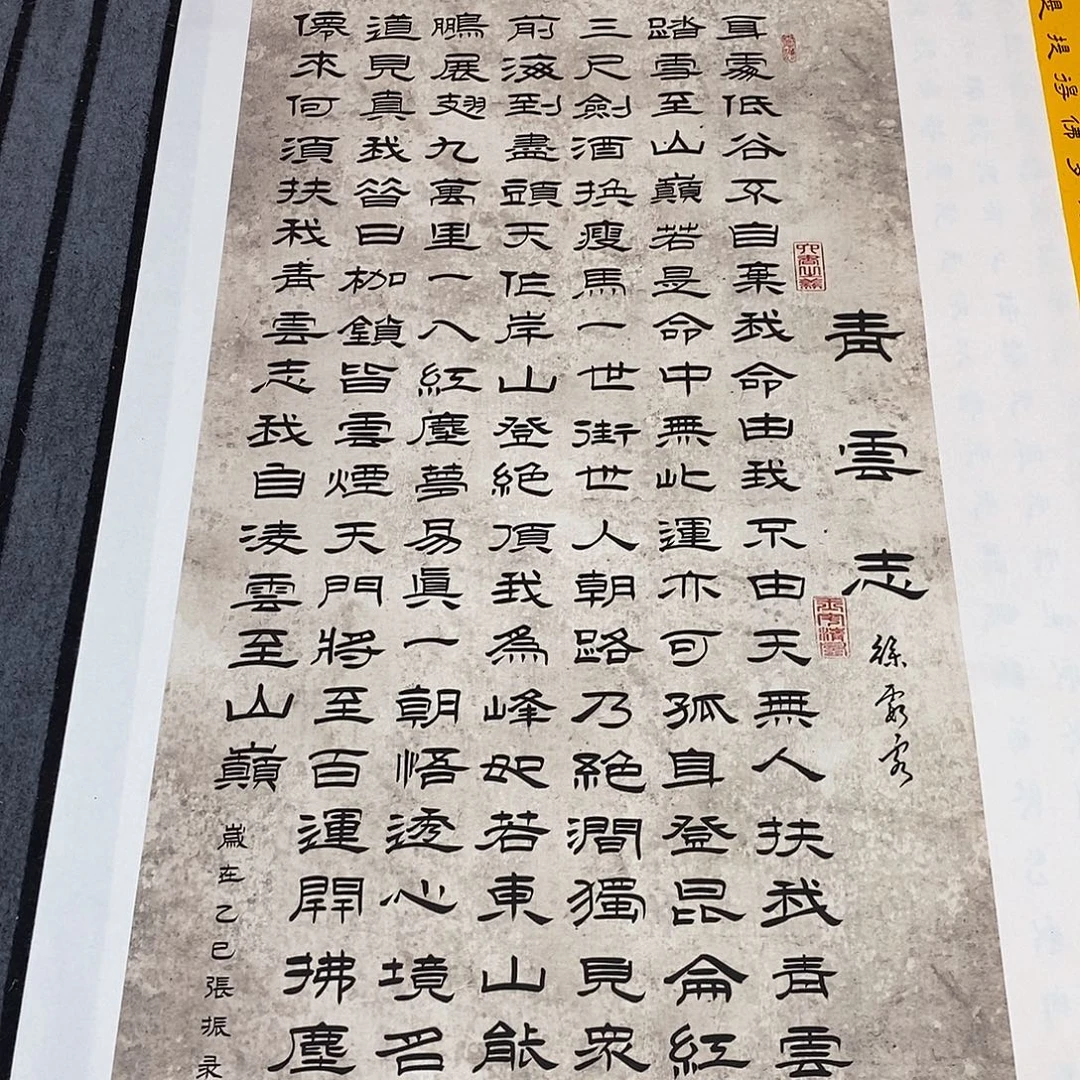 青雲志
徐霞客
身處低谷不自棄我命由我不由天無人扶我青雲
踏雪至山巔若是命中無此運亦可孤身登昆侖紅
三尺劍酒換瘦馬一世街世人朝路乃絕澗獨見眾
前海到盡頭天作岸山登絕頂我為峰如若東山能
鵬展翅九萬里一入紅塵夢易真一朝悟透心境名
道見真我昔日枷鎖皆雲煙天門將至百運開拂塵
僊來何須扶我青雲志我自凌雲至山巔
歲在乙巳張振录